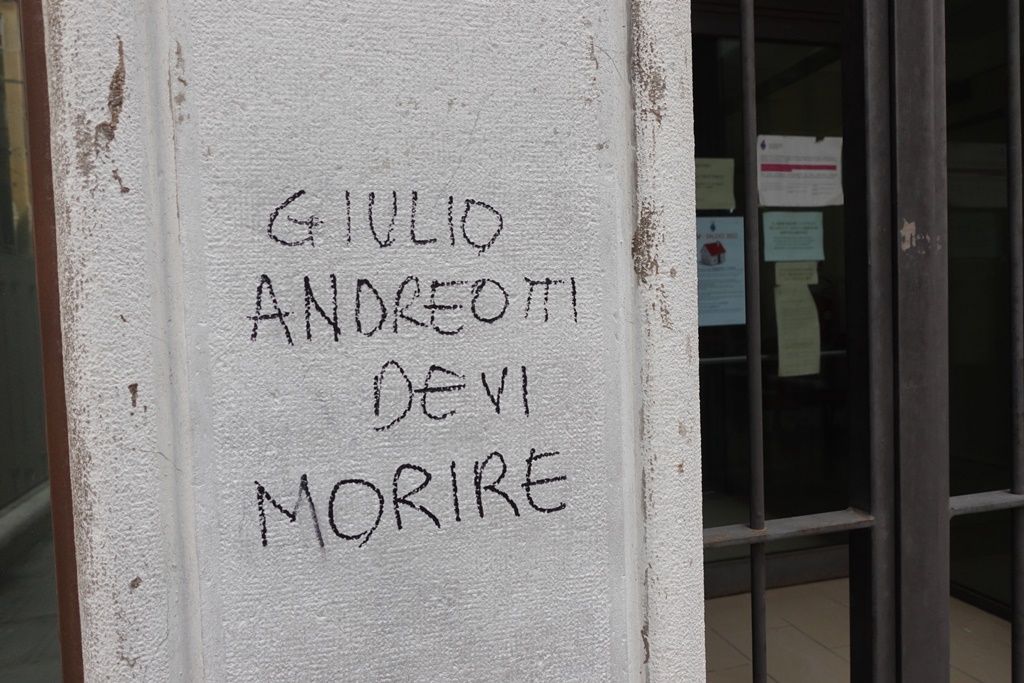 GIULIO
ANDREOTTI
DEVI
MORIRE